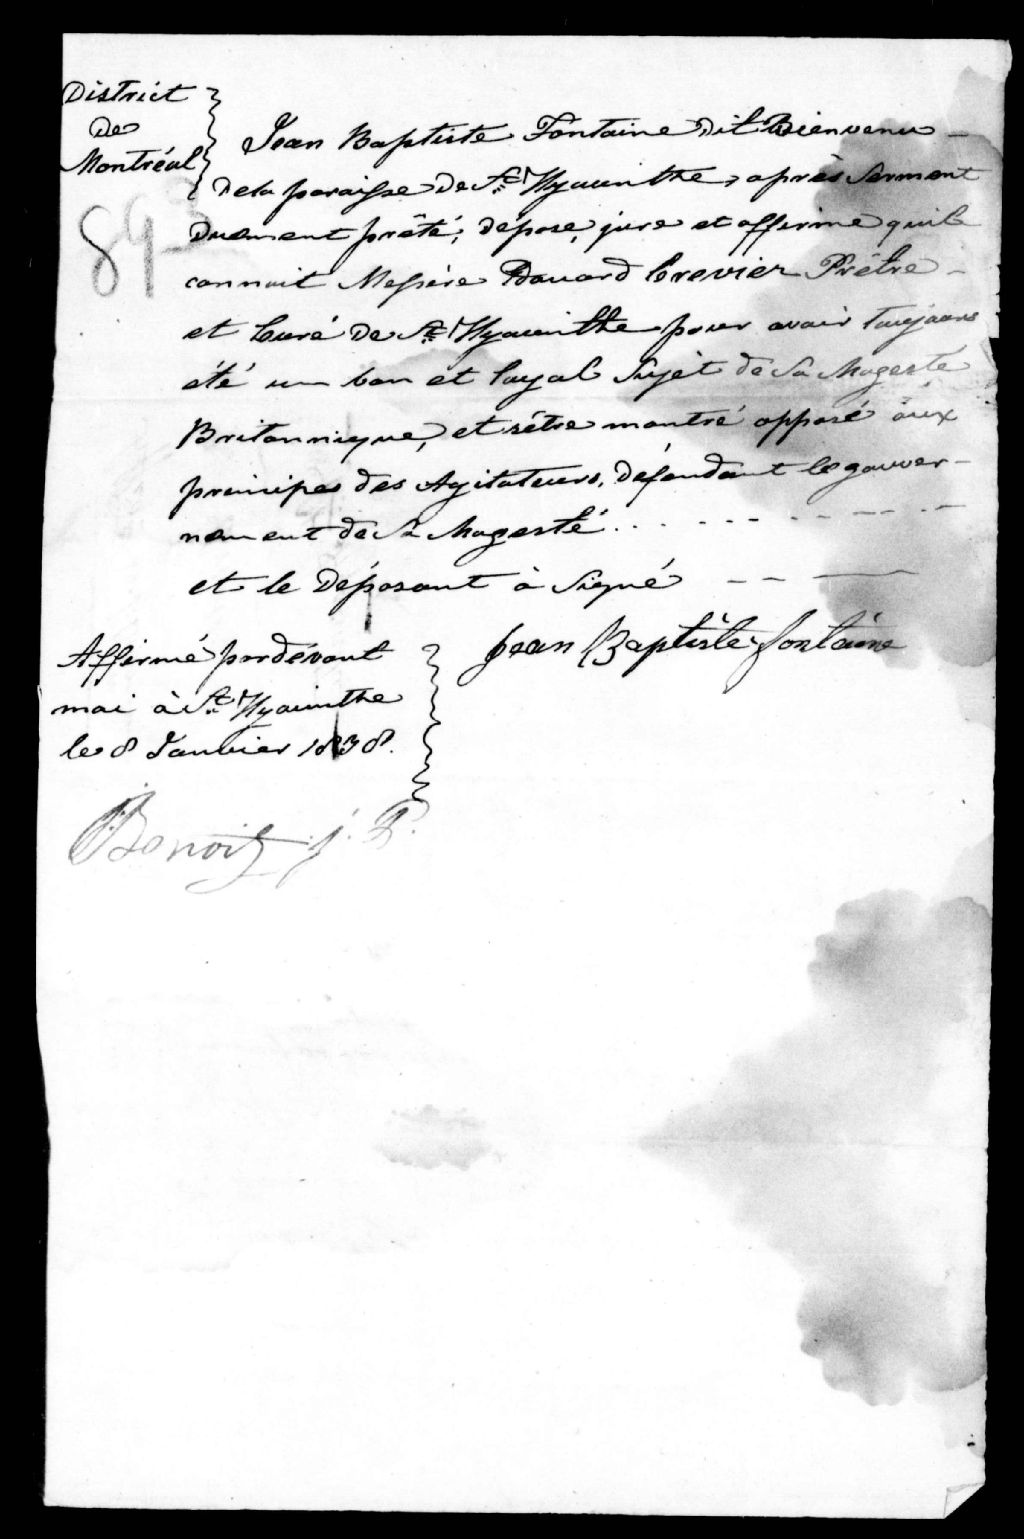 District
De
Montréal
Jean Baptiste Fontaine Dit Bienvenu
Dela paroisse De St. Hyacinthe, après Serment
Duement prêté, dépose, jure et affirme quil
connait Messire Edouard Crevier Prêtre
et Curé De St. Hyacinthe pour avoir toujours
été un bon et loyal Sujèt de Sa Magesté
Britannique, et s'être montré opposé aux
principes des Agitateurs, Défendant le gouver-
nement de Sa Magesté
et le Déposant à Signé
Jean Baptiste fontaine
Affirmé pardévant
moi à St. Hyacinthe
le 8 Janvier 1838.
Benoit J. P.